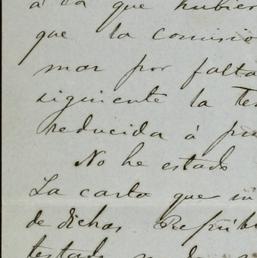 á la que hubier
que la comisio
mar por falta
siguiente la te
reducida á
No he estado
La carta que
de dichas Repúb